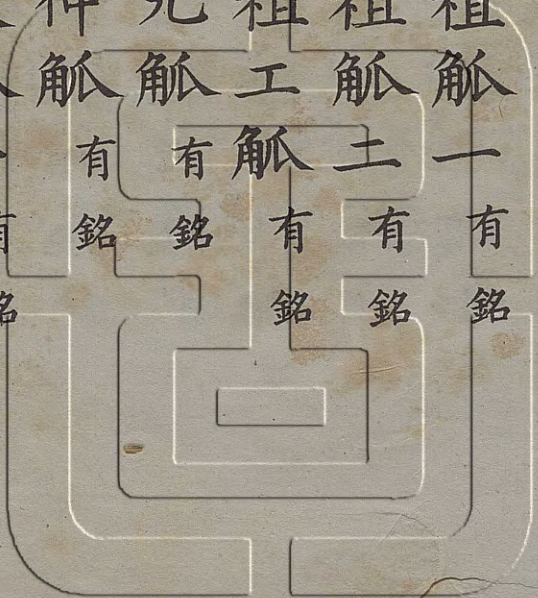 祖觚一有銘
祖觚二有銘
祖工觚有銘
觚有銘
仲觚有銘